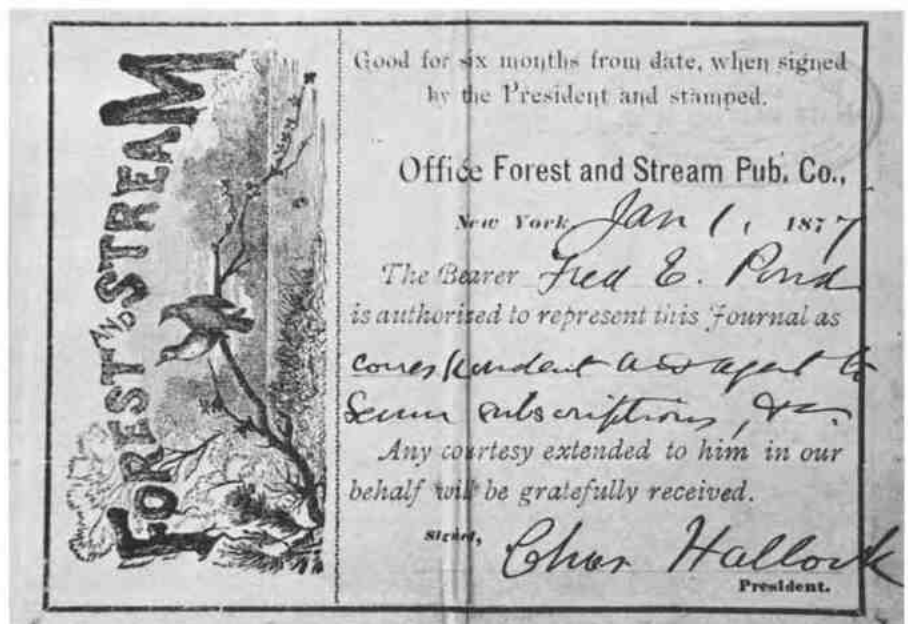 FOREST AND STREAM
Good for six months from date, when signed
by the President and stamped.
Office Forest and Stream Pub. Co.,
New York, Jan 1, 1877
The Bearer Fred E. Pond
is authorized to represent this Journal as
correspondent and agent to
secure subscriptions, &c.
Any courtesy extended to him in our
behalf will be gratefully received.
Signed, Chas Hallock
President.